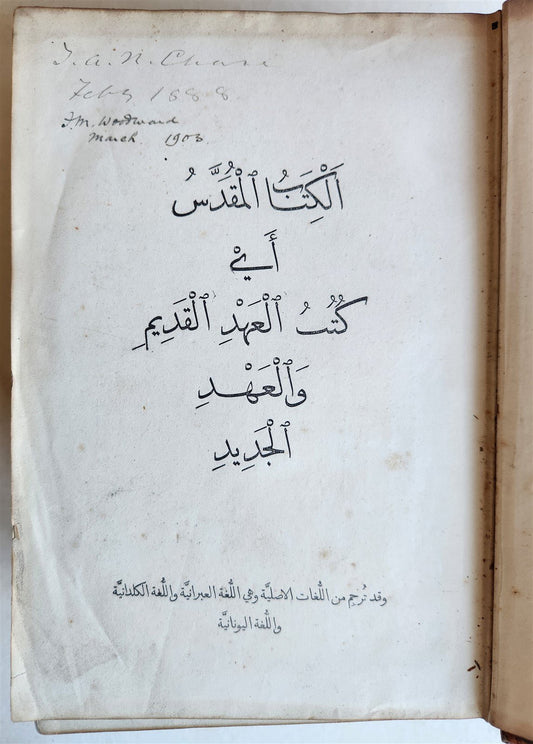 J. A. N. Chase
Feby 1888
F. M. Woodward
March 1903
اَلْكِتَابُ ٱلْمُقَدَّسُ
أَيْ
كُتُبُ ٱلْعَهْدِ ٱلْقَدِيمِ
وَٱلْعَهْدِ
ٱلْجَدِيدِ
وقد تُرجِم من اللُّغات الاصليَّة وهي اللُّغة العبرانيَّة واللُّغة الكلدانيَّة
واللُّغة اليونانيَّة